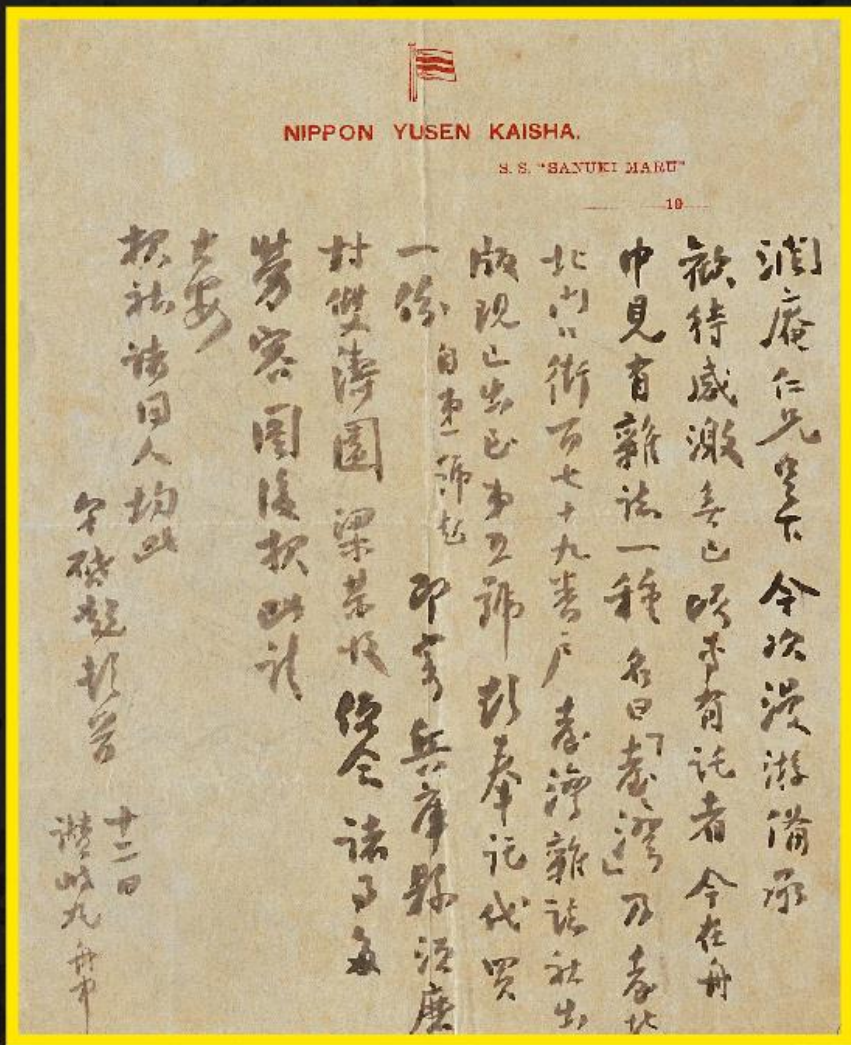 NIPPON YUSEN KAISHA.
S. S. "SANUKI MARU"
19
潤庵仁兄足下 今次漫游備承
歡待感激無已 有託者今在舟
中見有雜誌一種 名曰「臺灣」乃臺北
北門口街百七十九番戶臺灣雜誌社出
版現已出至第五號 奉託代買
一份 自第一號起 即寄兵庫縣須磨
村雙濤園 梁 收 諸事多
勞容圖後報此請
大安
報社諸同人均此
弟啟超頓首
十二日
讚岐丸舟中